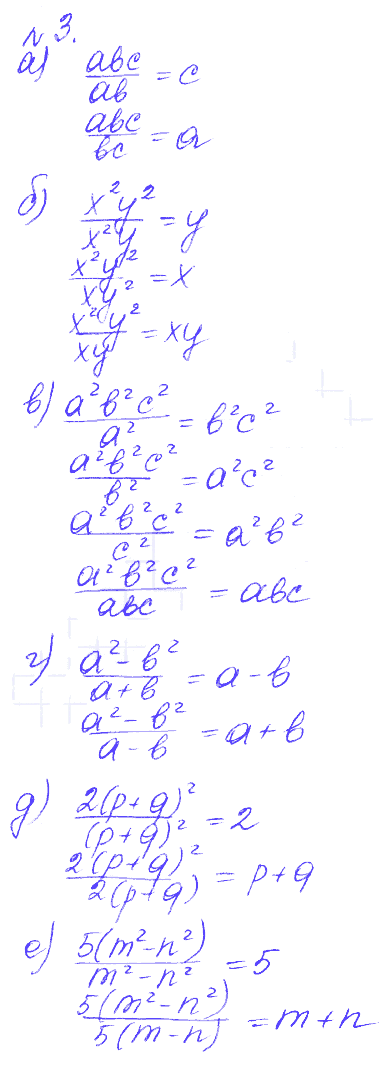 № 3.
а) abc/ab = c
abc/bc = a
б) x²y²/x²y = y
x²y²/xy² = x
x²y²/xy = xy
в) a²b²c²/a² = b²c²
a²b²c²/b² = a²c²
a²b²c²/c² = a²b²
a²b²c²/abc = abc
г) a²-b²/a+b = a-b
a²-b²/a-b = a+b
д) 2(p+q)²/(p+q)² = 2
2(p+q)²/2(p+q) = p+q
е) 5(m²-n²)/m²-n² = 5
5(m²-n²)/5(m-n) = m+n